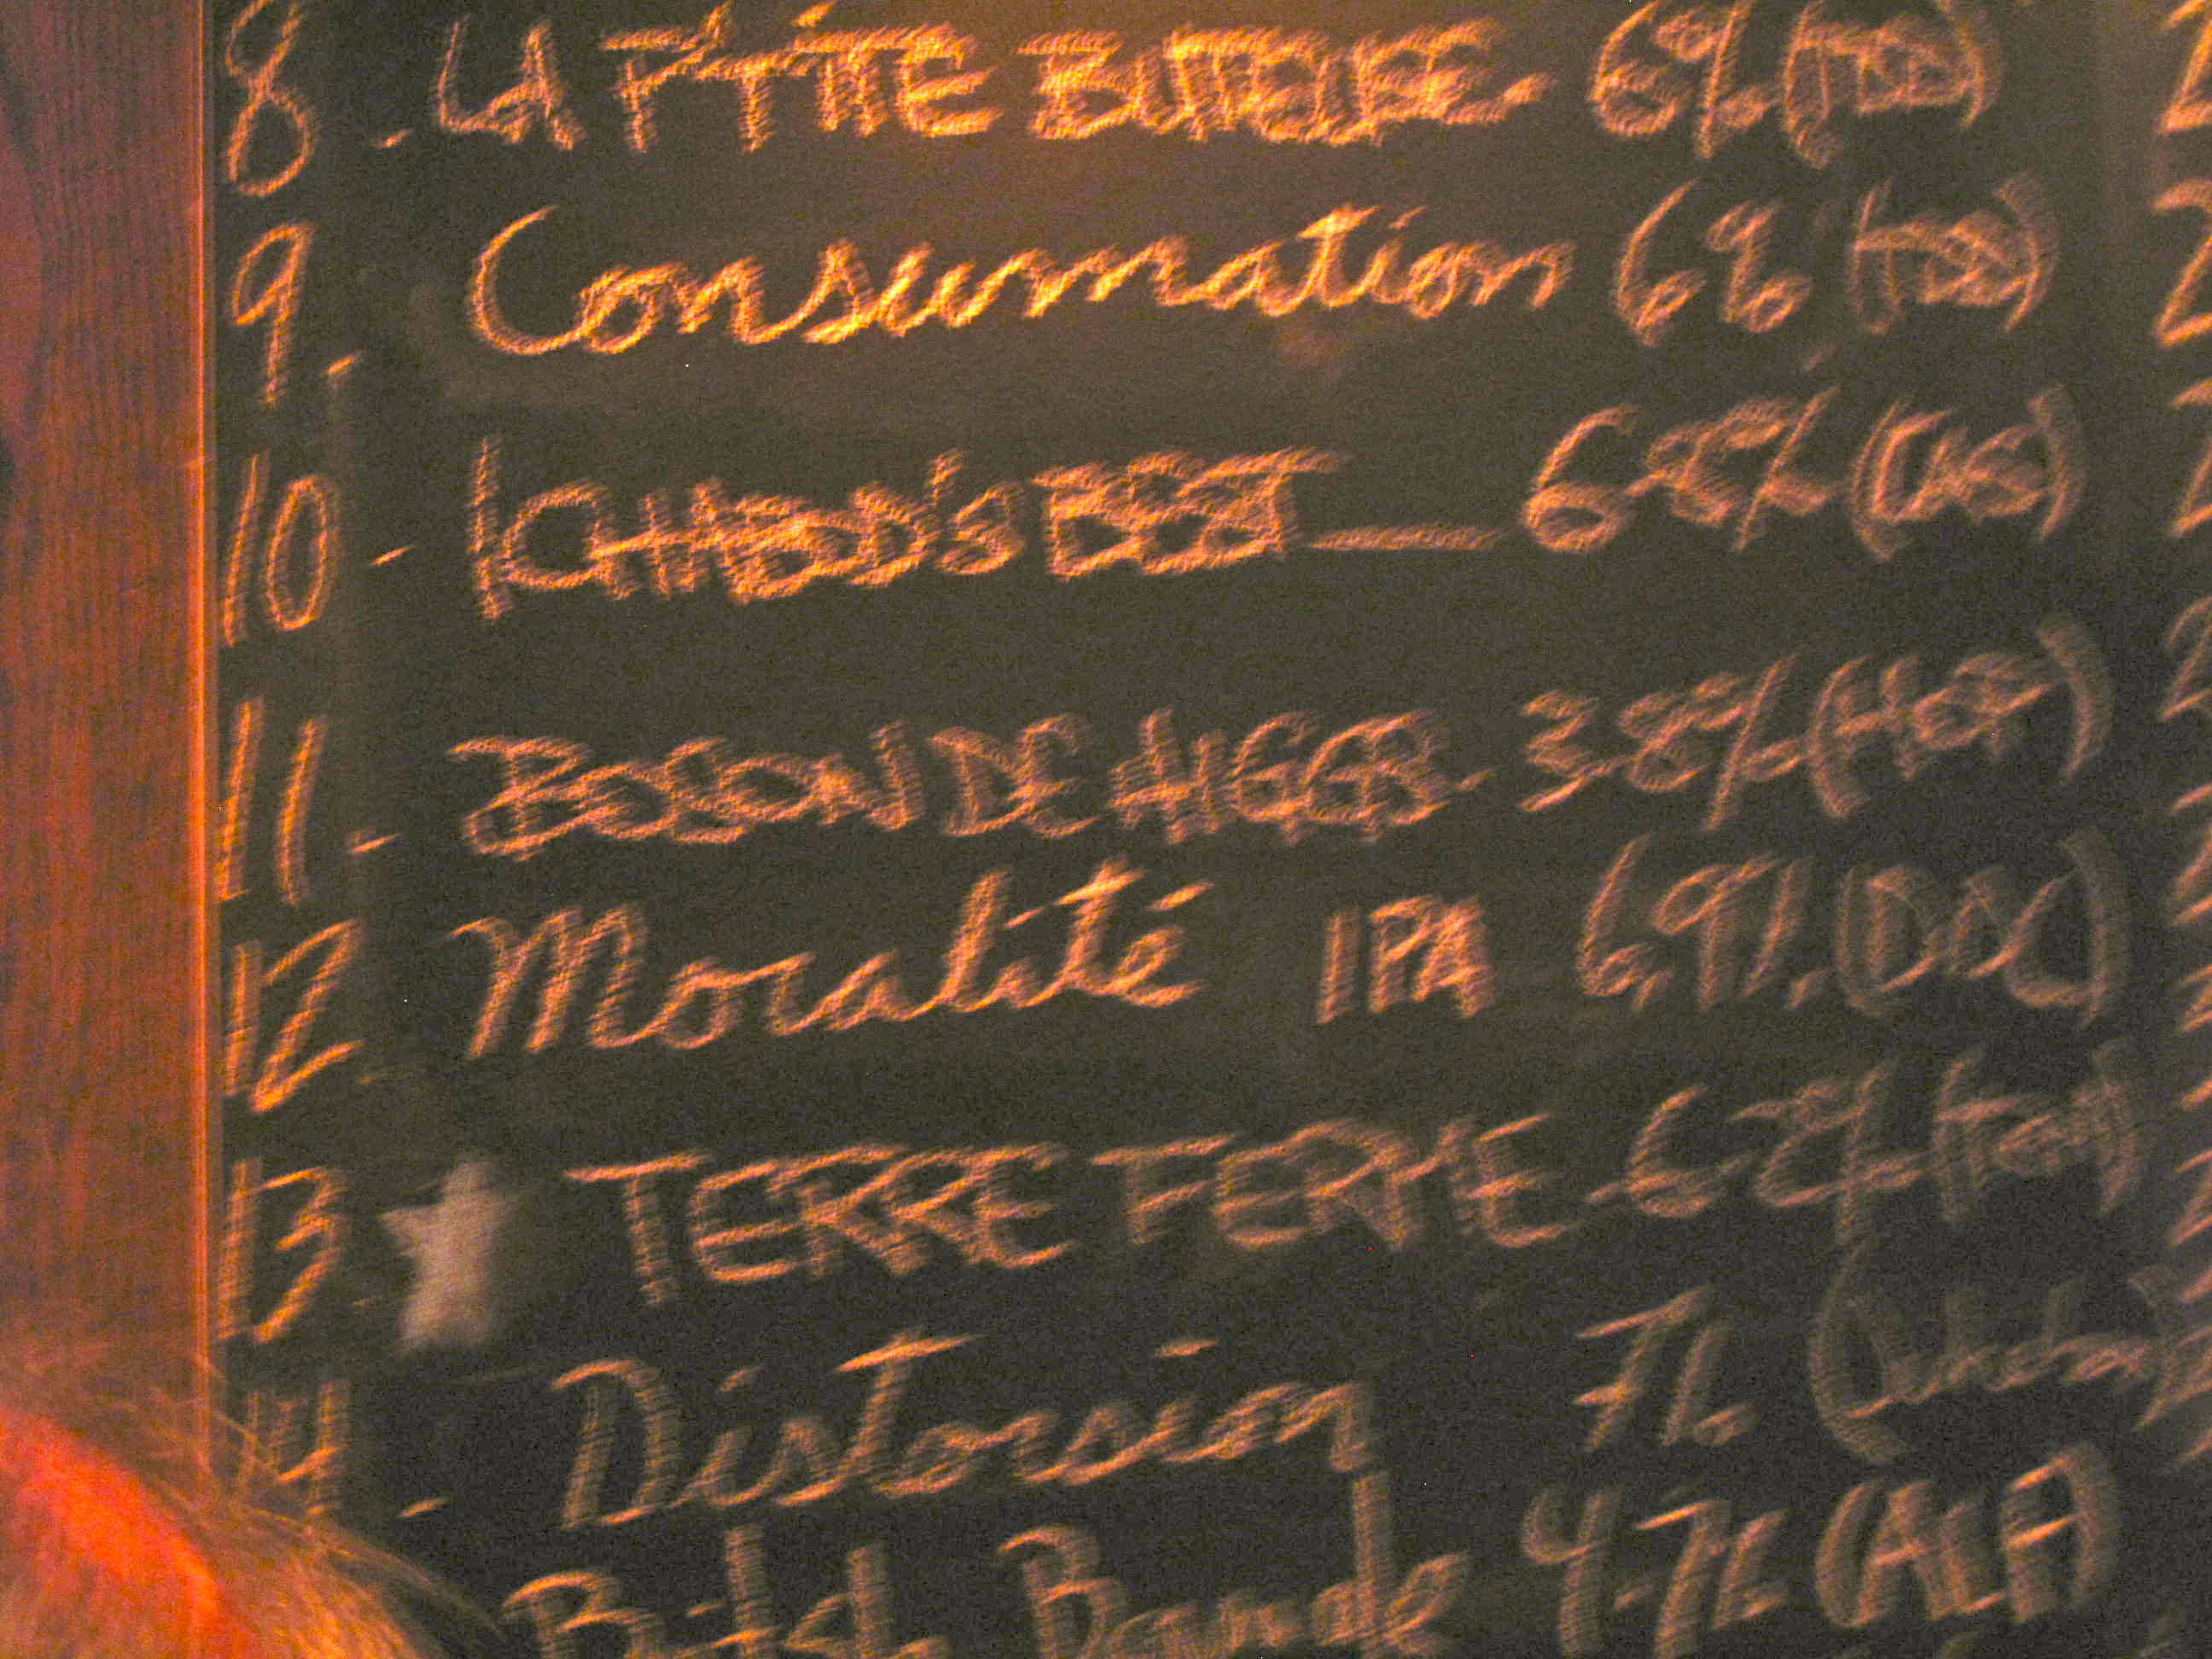 8 - LA P'TITE BUTEUSE - 6% (TDD)
9 - Consumation 6% (TDD)
10 - ICHABOD'S BEST — 6.8% (US)
11 - BOSON DE HIGGS - 3.8% (HOP)
12 Moralité IPA 6,9% (DDC)
13 - TERRE FERME - 6.2%
14 - Distorsion 7%
Bitch Blonde 4.7% (ALF)